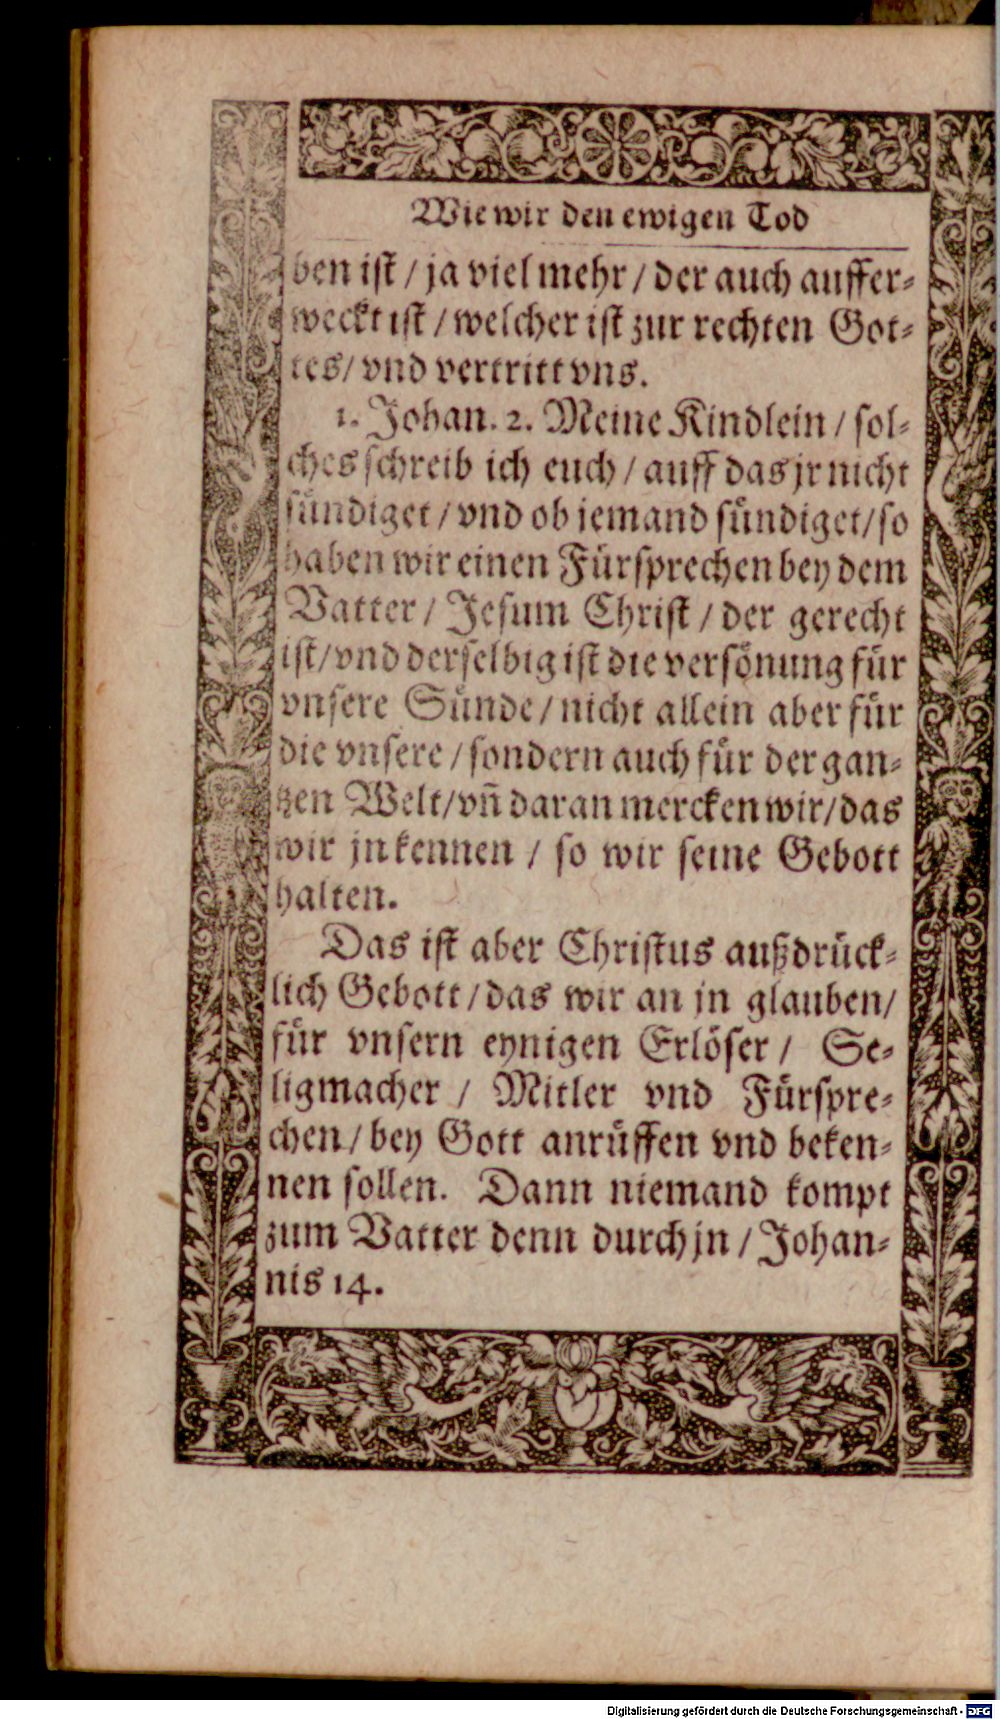 Wie wir den ewigen Tod
ben ist / ja viel mehr / der auch auffer-
weckt ist / welcher ist zur rechten Got-
tes / vnd vertritt vns.
1. Johan. 2. Meine Kindlein / sol-
ches schreib ich euch / auff das jr nicht
sündiget / vnd ob jemand sündiget / so
haben wir einen Fürsprechen bey dem
Vatter / Jesum Christ / der gerecht
ist / vnd derselbig ist die versönung für
vnsere Sünde / nicht allein aber für
die vnsere / sondern auch für der gan-
tzen Welt / vñ daran mercken wir / das
wir jn kennen / so wir seine Gebott
halten.
Das ist aber Christus außdrück-
lich Gebott / das wir an jn glauben /
für vnsern eynigen Erlöser / Se-
ligmacher / Mitler vnd Fürspre-
chen / bey Gott anrüffen vnd beken-
nen sollen. Dann niemand kompt
zum Vatter denn durch jn / Johan-
nis 14.
Digitalisierung gefördert durch die Deutsche Forschungsgemeinschaft - DFG